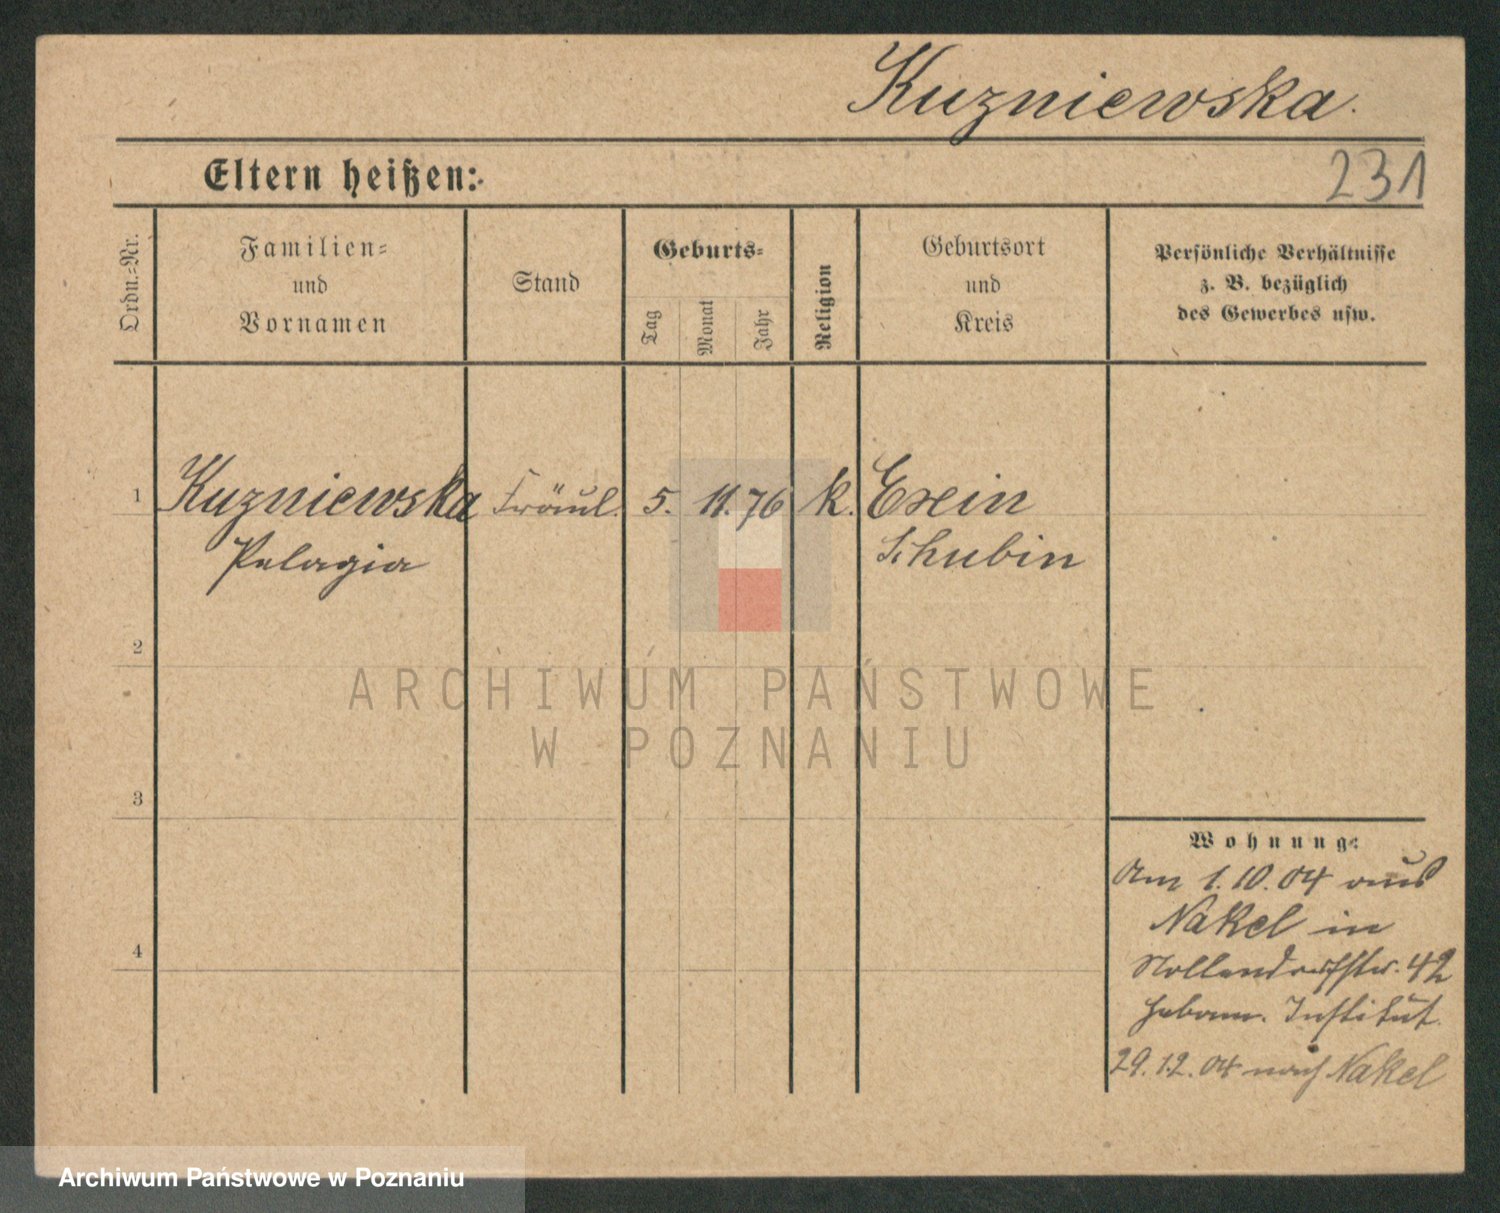 Kuzniewska.
Eltern heißen:
231
Ordn.-Nr.
Familien-
und
Vornamen
Stand
Geburts-
Tag
Monat
Jahr
Religion
Geburtsort
und
Kreis
Persönliche Verhältnisse
z. B. bezüglich
des Gewerbes usw.
1
Kuzniewska Fräul. 5. 11. 76 k. Exin
Pelagia
Schubin
2
3
4
Wohnung:
Am 1.10.04 aus
Nakel in
Nollendorffstr. 42
Hebam. Institut.
29.12.04 nach Nakel
ARCHIWUM PAŃSTWOWE
W POZNANIU
Archiwum Państwowe w Poznaniu